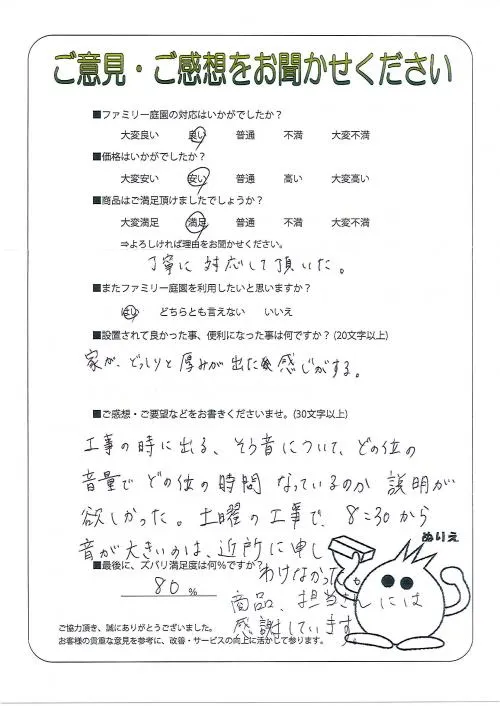 ご意見・ご感想をお聞かせください
■ファミリー庭園の対応はいかがでしたか？
大変良い 良い 普通 不満 大変不満
■価格はいかがでしたか？
大変安い 安い 普通 高い 大変高い
■商品はご満足頂けましたでしょうか？
大変満足 満足 普通 不満 大変不満
⇒よろしければ理由をお聞かせください。
丁寧に対応して頂いた。
■またファミリー庭園を利用したいと思いますか？
はい どちらとも言えない いいえ
■設置されて良かった事、便利になった事は何ですか？(20文字以上)
家が、どっしりと厚みが出た感じがする。
■ご感想・ご要望などをお書きくださいませ。(30文字以上)
工事の時に出る、そう音について、どの位の
音量でどの位の時間なっているのか説明が
欲しかった。土曜の工事で、8:30から
音が大きいのは、近所に申し
わけなかった
ぬりえ
■最後に、ズバリ満足度は何％ですか？
80％
商品、担当さんには
感謝しています。
ご協力頂き、誠にありがとうございました。
お客様の貴重な意見を参考に、改善・サービスの向上に活かして参ります。